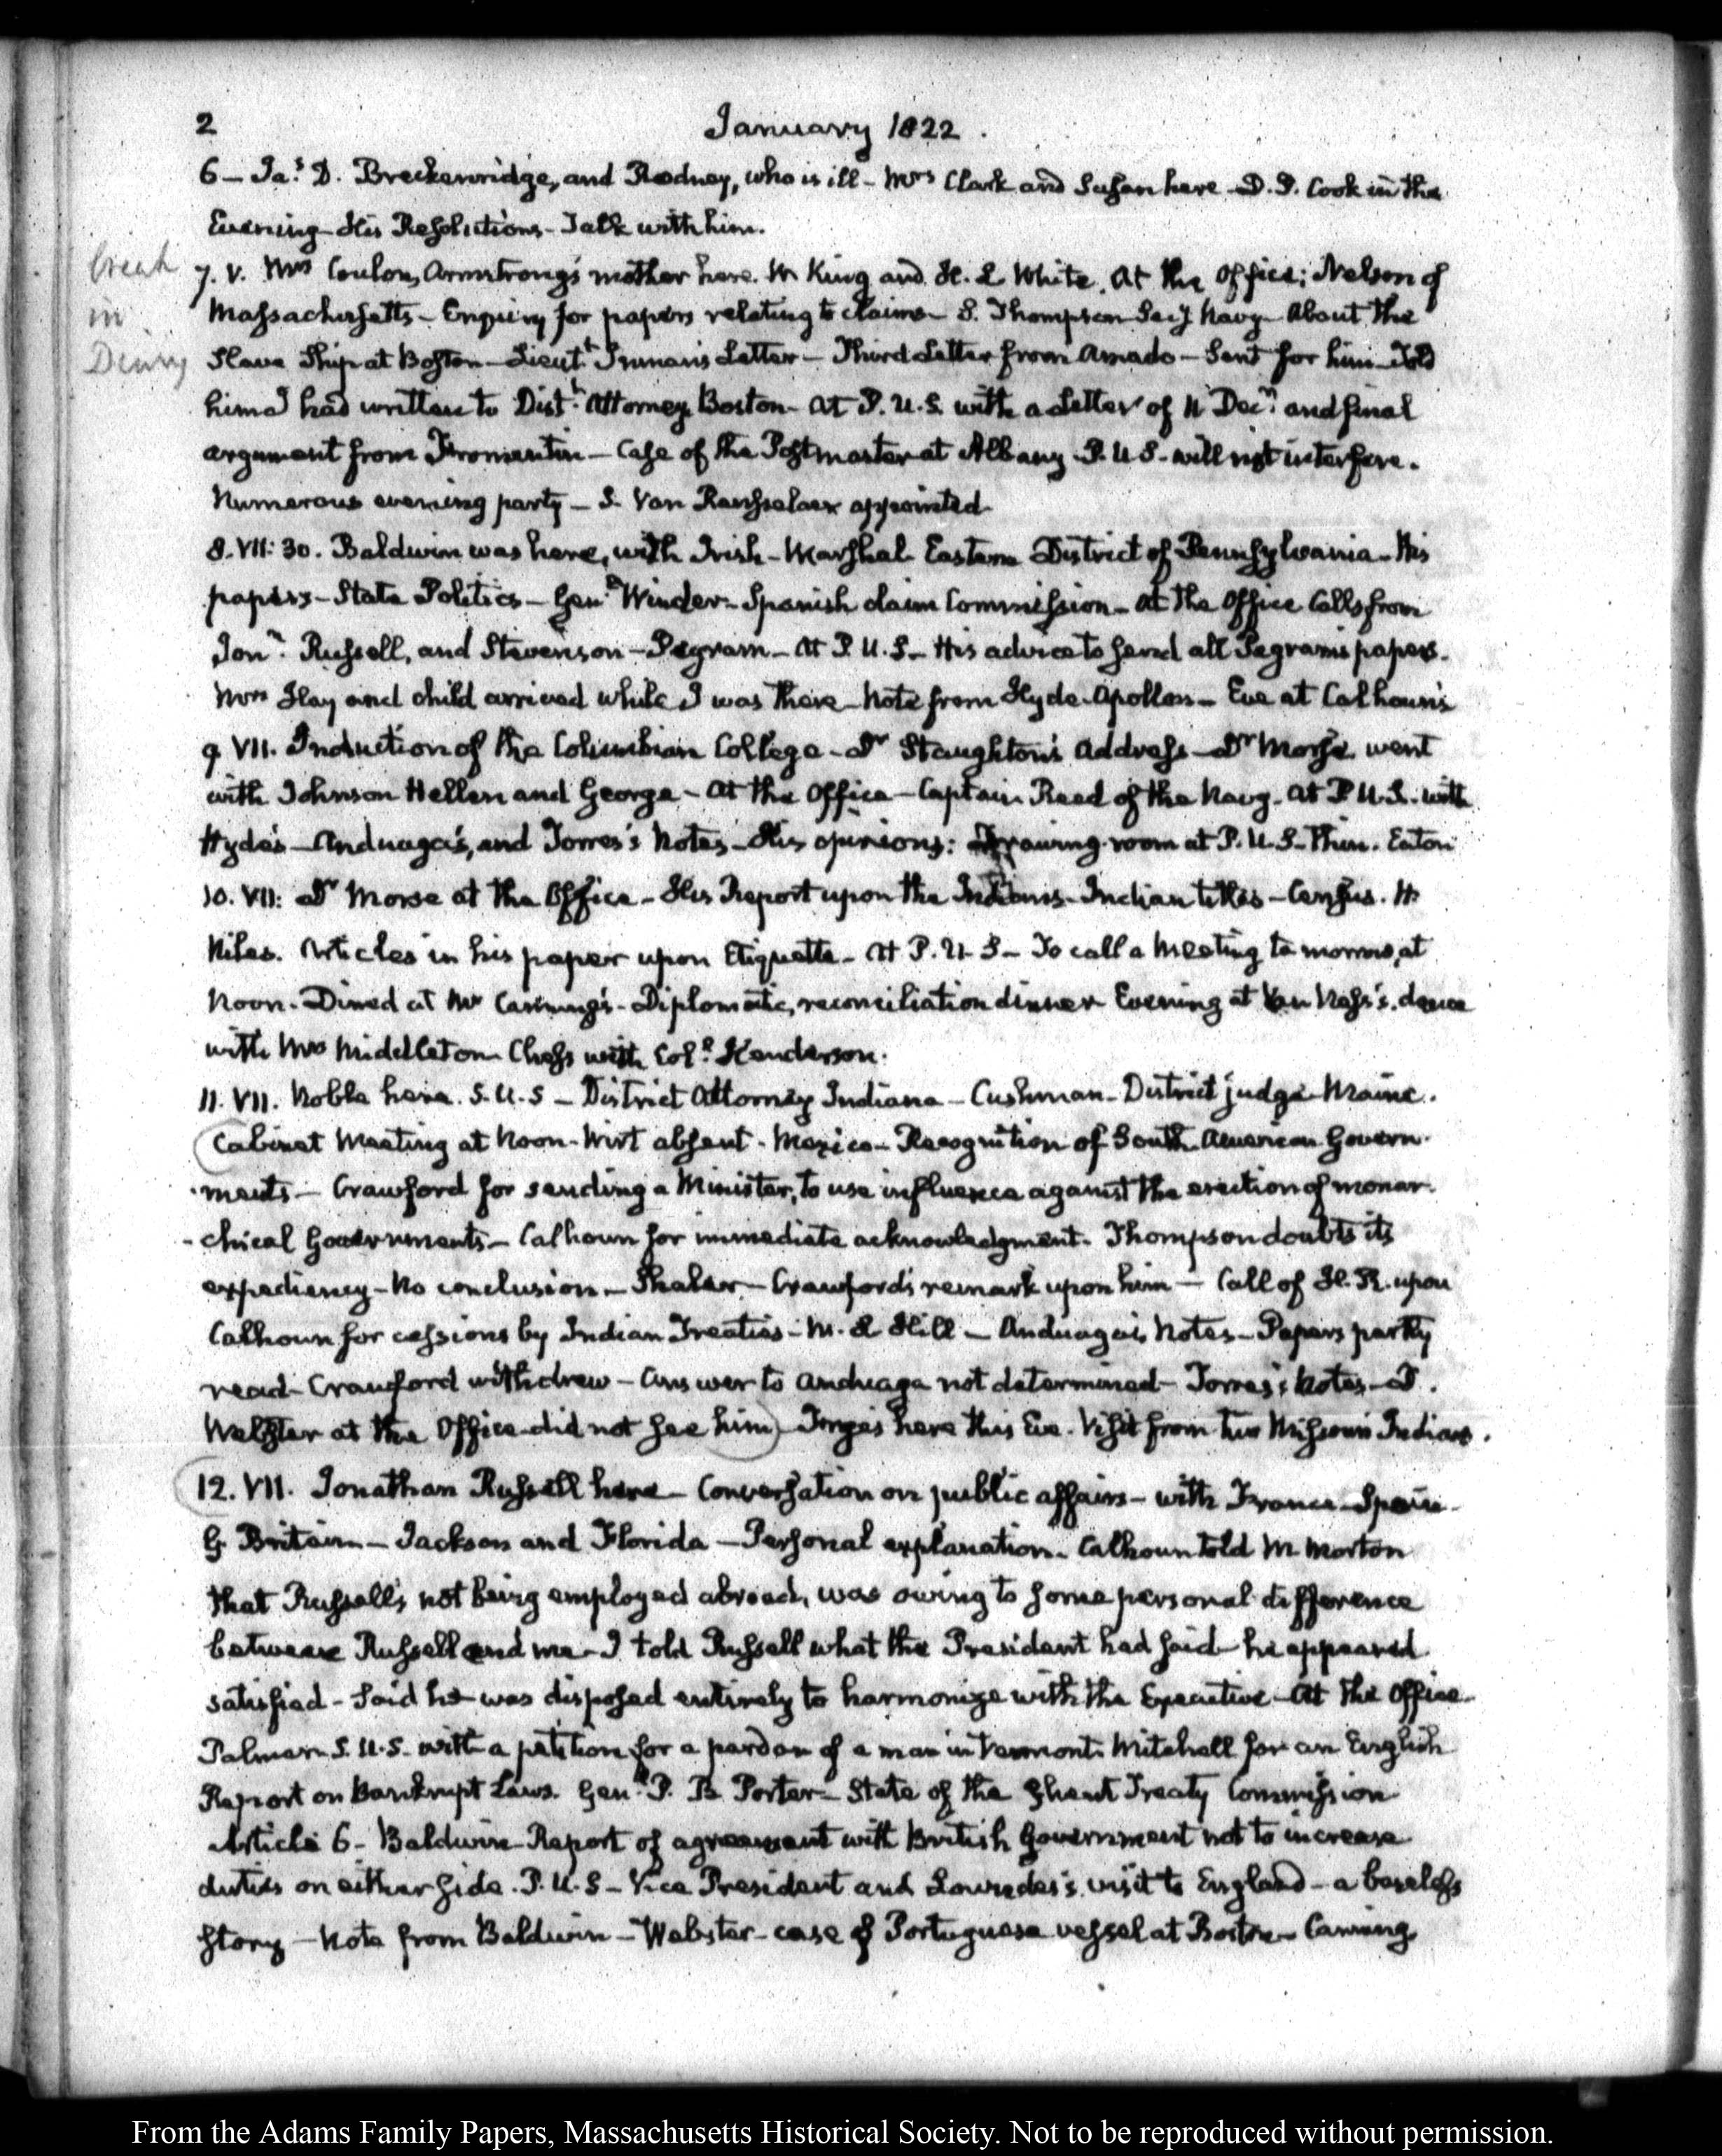 2
January 1822.
6 — Jas. D. Breckenridge, and Rodney, who is ill — Mrs Clark and Susan here — D. P. Cook in the
Evening — His Resolutions — Talk with him.
break
in
Diary
7. V. Mrs Coulon, Armstrong's mother here. W King and H. L White. At the Office; Nelson of
Massachusetts — Enquiry for papers relating to claims — S. Thompson Secy Navy — About the
Slave Ship at Boston — Lieut. Letter — Third Letter from Amado — Sent for him — Told
him I had written to Distt. Attorney Boston — At P. U. S. with a Letter of 11 Decr. and final
argument from Fromentin — Case of the Postmaster at Albany — P. U S — will not interfere.
Numerous evening party — S. Van Rensselaer appointed —
8. VII: 30. Baldwin was here, with Irish — Marshal — Eastern District of Pennsylvania — His
papers — State Politics — Genl. Winder — Spanish claim Commission — At the Office Calls from
Jonn. Russell, and Stevenson — Pegram — At P. U. S — His advice to send all Pegram's papers.
Mrs Hay and child arrived while I was there — Note from Hyde — Apollon — Eve at Calhoun's
9 VII. Induction of the Columbian College — Dr Staughton's Address — Dr Morse went
with Johnson Hellen and George — At the Office — Captain Read of the Navy — At P. U. S. with
Hyde's — Anduaga's, and Torres's Notes — His opinions: Drawing room at P. U. S — Thin. Eaton
10. VII: Dr Morse at the Office — His Report upon the Indians — Indian titles — Census. H
Niles. Articles in his paper upon Etiquette — At P. U. S — To call a Meeting to morrow, at
Noon — Dined at Mr Canning's — Diplomatic, reconciliation dinner Evening at Van Ness's. dance
with Mrs Middleton Chess with Coll. Henderson.
11. VII. Noble here. S. U. S — District Attorney Indiana — Cushman — District judge Maine.
Cabinet Meeting at Noon — Wirt absent — Mexico — Recognition of South American Govern-
ments — Crawford for sending a Minister, to use influence against the erection of monar-
-chical Governments — Calhoun for immediate acknowledgment. Thompson doubts its
expediency — No conclusion — Shaler — Crawford's remark upon him — Call of H. R. upon
Calhoun for cessions by Indian Treaties — M. L Hill — Anduaga's Notes — Papers partly
read — Crawford withdrew — Answer to Anduaga not determined — Torres's Notes — D.
Webster at the Office did not see him — here this Eve. Visit from two Missouri Indians.
12. VII. Jonathan Russell here — Conversation on public affairs — with France — Spain —
G. Britain — Jackson and Florida — Personal explanation. Calhoun told M. Morton
that Russell's not being employed abroad, was owing to some personal difference
between Russell and me — I told Russell what the President had said — he appeared
satisfied — Said he was disposed entirely to harmonize with the Executive — At the Office
Palmer S. U. S. with a petition for a pardon of a man in Vermont. Mitchell for an English
Report on Bankrupt Laws. Genl. P. B. Porter — State of the Ghent Treaty Commission
Article 6 — Baldwin — Report of agreement with British Government not to increase
duties on either side. P. U. S — Vice President and Lowndes's visit to England — a baseless
story — Note from Baldwin — Webster — case of Portuguese vessel at Boston — Canning
From the Adams Family Papers, Massachusetts Historical Society. Not to be reproduced without permission.